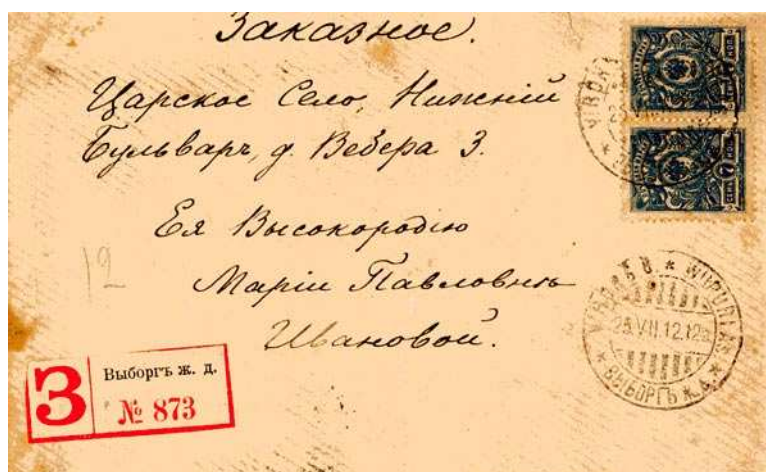 Заказное.
Царское Село, Нижній
Бульваръ, д. Вебера 3.
Ея Высокородію
Маріи Павловнѣ
Ивановой.
12
З
Выборгъ ж. д.
№ 873
СЕМЬ 7 КОП.
25.VII.12.12
ВЫБОРГЪ Ж. Д.